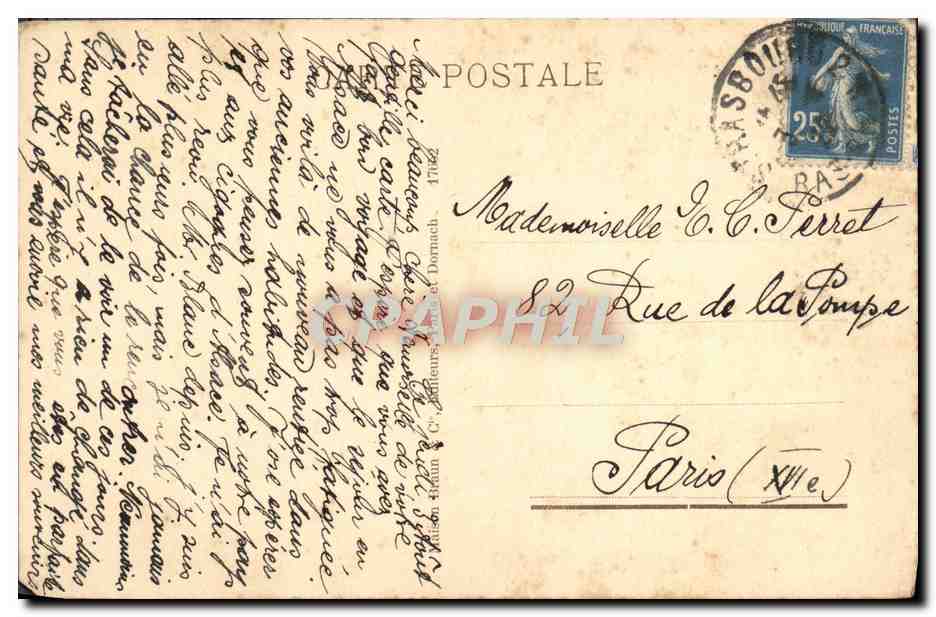 CARTE POSTALE
RÉPUBLIQUE FRANÇAISE
25
POSTES
STRASBOURG 2
Mademoiselle E. C. Perret
82 Rue de la Pompe
Paris (XVIe)
CPAPHIL
Maison Braun & Cie, Editeurs, Paris et Dornach. 17062
jeudi, 9 août
Merci beaucoup chère demoiselle de votre
carte. J'espère que vous avez
fait bon voyage et que le séjour en
Alsace ne vous a pas trop fatiguée
Vous voilà de nouveau rentrée dans
vos anciennes habitudes. J'ose espérer
que vous penser souvent à notre pays
et aux cigognes d'Alsace. Je n'ai
plus revu Mr. Blanc depuis. J'y suis
allé plusieurs fois, mais je n'ai jamais
eu la chance de le rencontrer. Néanmoins
je tâcherai de le voir un de ces jours.
Sans cela il n'y a rien de changé dans
ma vie. J'espère que vous êtes en parfaite
santé et vous envoie mes meilleurs souvenirs